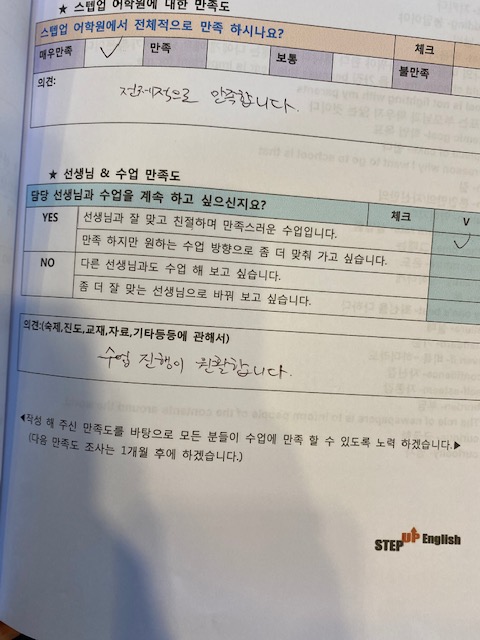 ★ 스텝업 어학원에 대한 만족도
스텝업 어학원에서 전체적으로 만족 하시나요? 체크
매우만족 ✓ 만족 보통 불만족
의견:
전체적으로 만족합니다.
★ 선생님 & 수업 만족도
담당 선생님과 수업을 계속 하고 싶으신지요? 체크 V
YES 선생님과 잘 맞고 친절하며 만족스러운 수업입니다. ✓
만족 하지만 원하는 수업 방향으로 좀 더 맞춰 가고 싶습니다.
NO 다른 선생님과도 수업 해 보고 싶습니다.
좀 더 잘 맞는 선생님으로 바꿔 보고 싶습니다.
의견:(숙제,진도,교재,자료,기타등등에 관해서)
수업 진행이 원활합니다.
◀작성 해 주신 만족도를 바탕으로 모든 분들이 수업에 만족 할 수 있도록 노력 하겠습니다.▶
(다음 만족도 조사는 1개월 후에 하겠습니다.)
STEP UP English